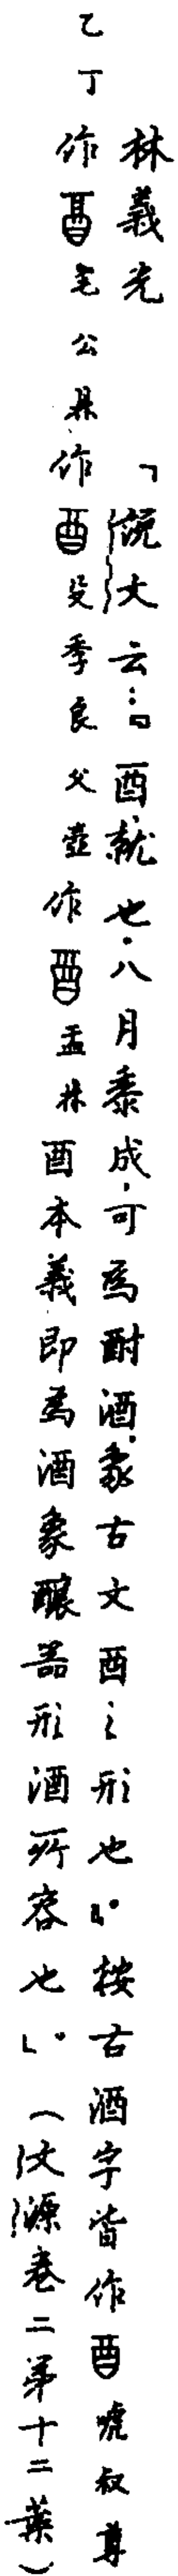 林義光　「說文云：『酉，就也。八月黍成，可為酎酒。象古文酉之形也。』按古酒字皆作酉虢叔尊
乙丁作酉毛公鼎作酉殳季良父壺作酉盂鼎酉本義即為酒象釀器形酒所容也」。（文源卷二第十二葉）